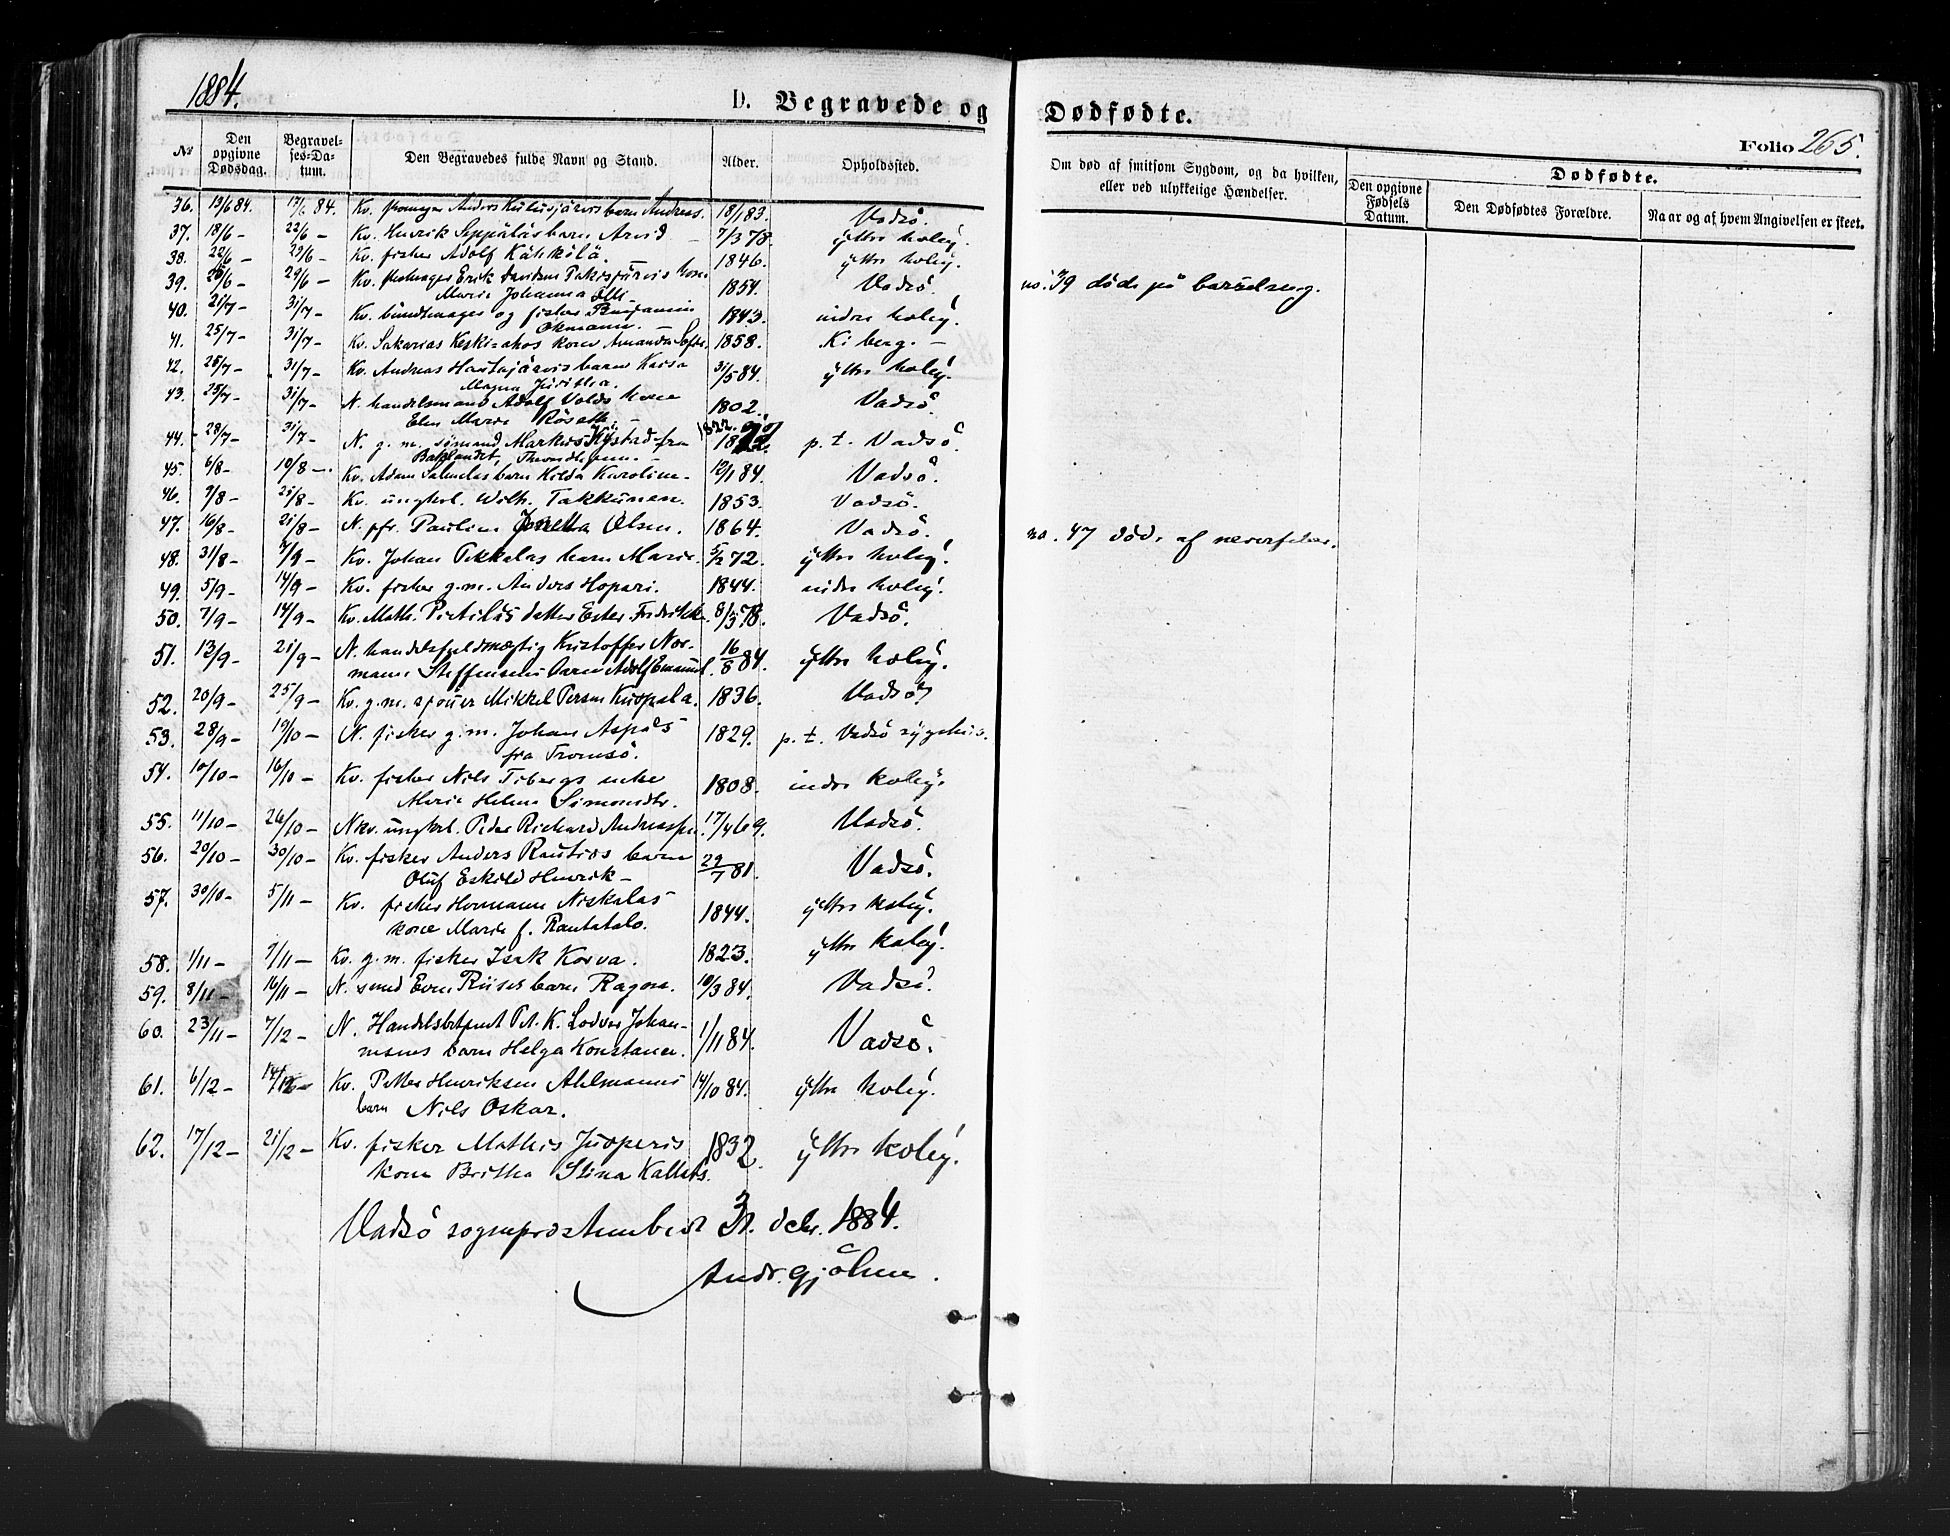 1884.
D. Begravede og Dødfødte.
Folio 265.
No
Den opgivne Dødsdag.
Begravelses-Datum.
Den Begravedes fulde Navn og Stand.
Alder.
Opholdssted.
Om død af smitsom Sygdom, og da hvilken, eller ved ulykkelige Hændelser.
Dødfødte.
Den opgivne Fødsels Datum.
Den Dødfødtes Forældre.
Naar og af hvem Angivelsen er skeet.
36. 13/6 84. 17/6 84. Kv. Anders barn Andreas. 18/1 83. Vadsö.
37. 18/6 - 22/6 - Kv. Henrik Seppäläs barn Arvid - 7/3 78. ÿttre kolnÿ.
38. 22/6 - 29/6 - Kv. fisker Adolf Kähkölä. 1846. ÿttre kolnÿ.
39. 26/6 - 29/6 - Kv. Erik Davidsen kone
Maria Johanna 1854. Vadsö.
no. 39 döde på barselseng.
40. 21/7 - 31/7 - Kv. og fisker Benjamin
Okmann. - 1843. indre kolnÿ.
41. 25/7 - 31/7 - Kv. Sakarias Keski-ahos kone Amanda 1858. Kiberg. -
42. 25/7 - 31/7 - Kv. Andreas Hautajärvis barn Kaisa
Magna 31/5 84. ÿttre kolnÿ.
43. 25/7 - 31/7 - N. handelsmand Adolf Volds kone
Elen Marie 1802. Vadsö.
44. 28/7 - 31/7 - N. g. m. sömand Markus fra
Baklandet, Throndhjem. - 1822. p. t. Vadsö.
45. 6/8 - 10/8 - Kv. Adam barn Hilda Karoline. 12/1 84. Vadsö.
46. 7/8 - 21/8 - Kv. ungkrl. Wilh. Takkunen. 1853. Vadsö.
47. 16/8 - 21/8 - N. pfr. Pauline Olsen. 1864. Vadsö.
no. 47 död. af nervefeber.
48. 31/8 - 7/9 - Kv. Johan Pikkalas barn Maria. 5/2 72. ÿttre kolnÿ.
49. 5/9 - 14/9 - Kv. fisker g. m. Anders Hopari. 1844. indre kolnÿ.
50. 7/9 - 14/9 - Kv. Math. Pietiläs datter Ester Fredrikke. 8/5 78. Vadsö.
51. 13/9 - 21/9 - N. handelsfuldmægtig Kristoffer Nor-
mann Steffensens barn Adolf Emanuel. 16/8 84. ÿttre kolnÿ.
52. 20/9 - 25/9 - Kv. g. m. Mikkel Persen Kuopala. 1836. Vadsö
53. 28/9 - 10/10 - N. fisker g. m. Johan Aspås
fra Tromsö. 1829. p. t. Vadsö sygehus.
54. 10/10 - 16/10 - Kv. fisker Nils Tibergs enke
Maria Helena Simonsdtr. 1808. indre kolnÿ.
55. 11/10 - 26/10 - Nkv. ungkrl. Peder Richard Andreassen. 17/4 69. Vadsö.
56. 20/10 - 30/10 - Kv. fisker Anders Rautios barn
Oluf Eskild Henrik - 29/7 81. Vadsö.
57. 30/10 - 5/11 - Kv. fisker Hermann Niskalas
kone Maria f. Rautatalo. 1844. ÿttre kolnÿ.
58. 1/11 - 7/11 - Kv. g. m. fisker Isak Korva. 1823. ÿttre kolnÿ.
59. 8/11 - 16/11 - N. smed Even Riises barn Ragna. 10/3 84. Vadsö.
60. 23/11 - 7/12 - N. Handelsbetjent Pet. K. Lodver Johan-
nesens barn Helga Konstance. 1/11 84. Vadsö.
61. 6/12 - 14/12 Kv. Petter Henriksen Ahlmanns
barn Nils Oskar. 14/10 84. ÿttre kolnÿ.
62. 17/12 - 21/12 - Kv. fisker Mathis Juoperis
kone Britha Stina 1832. ÿttre kolnÿ.
Vadsö sogneprestembed 31. dcbr. 1884.
Andr. Gjölme.